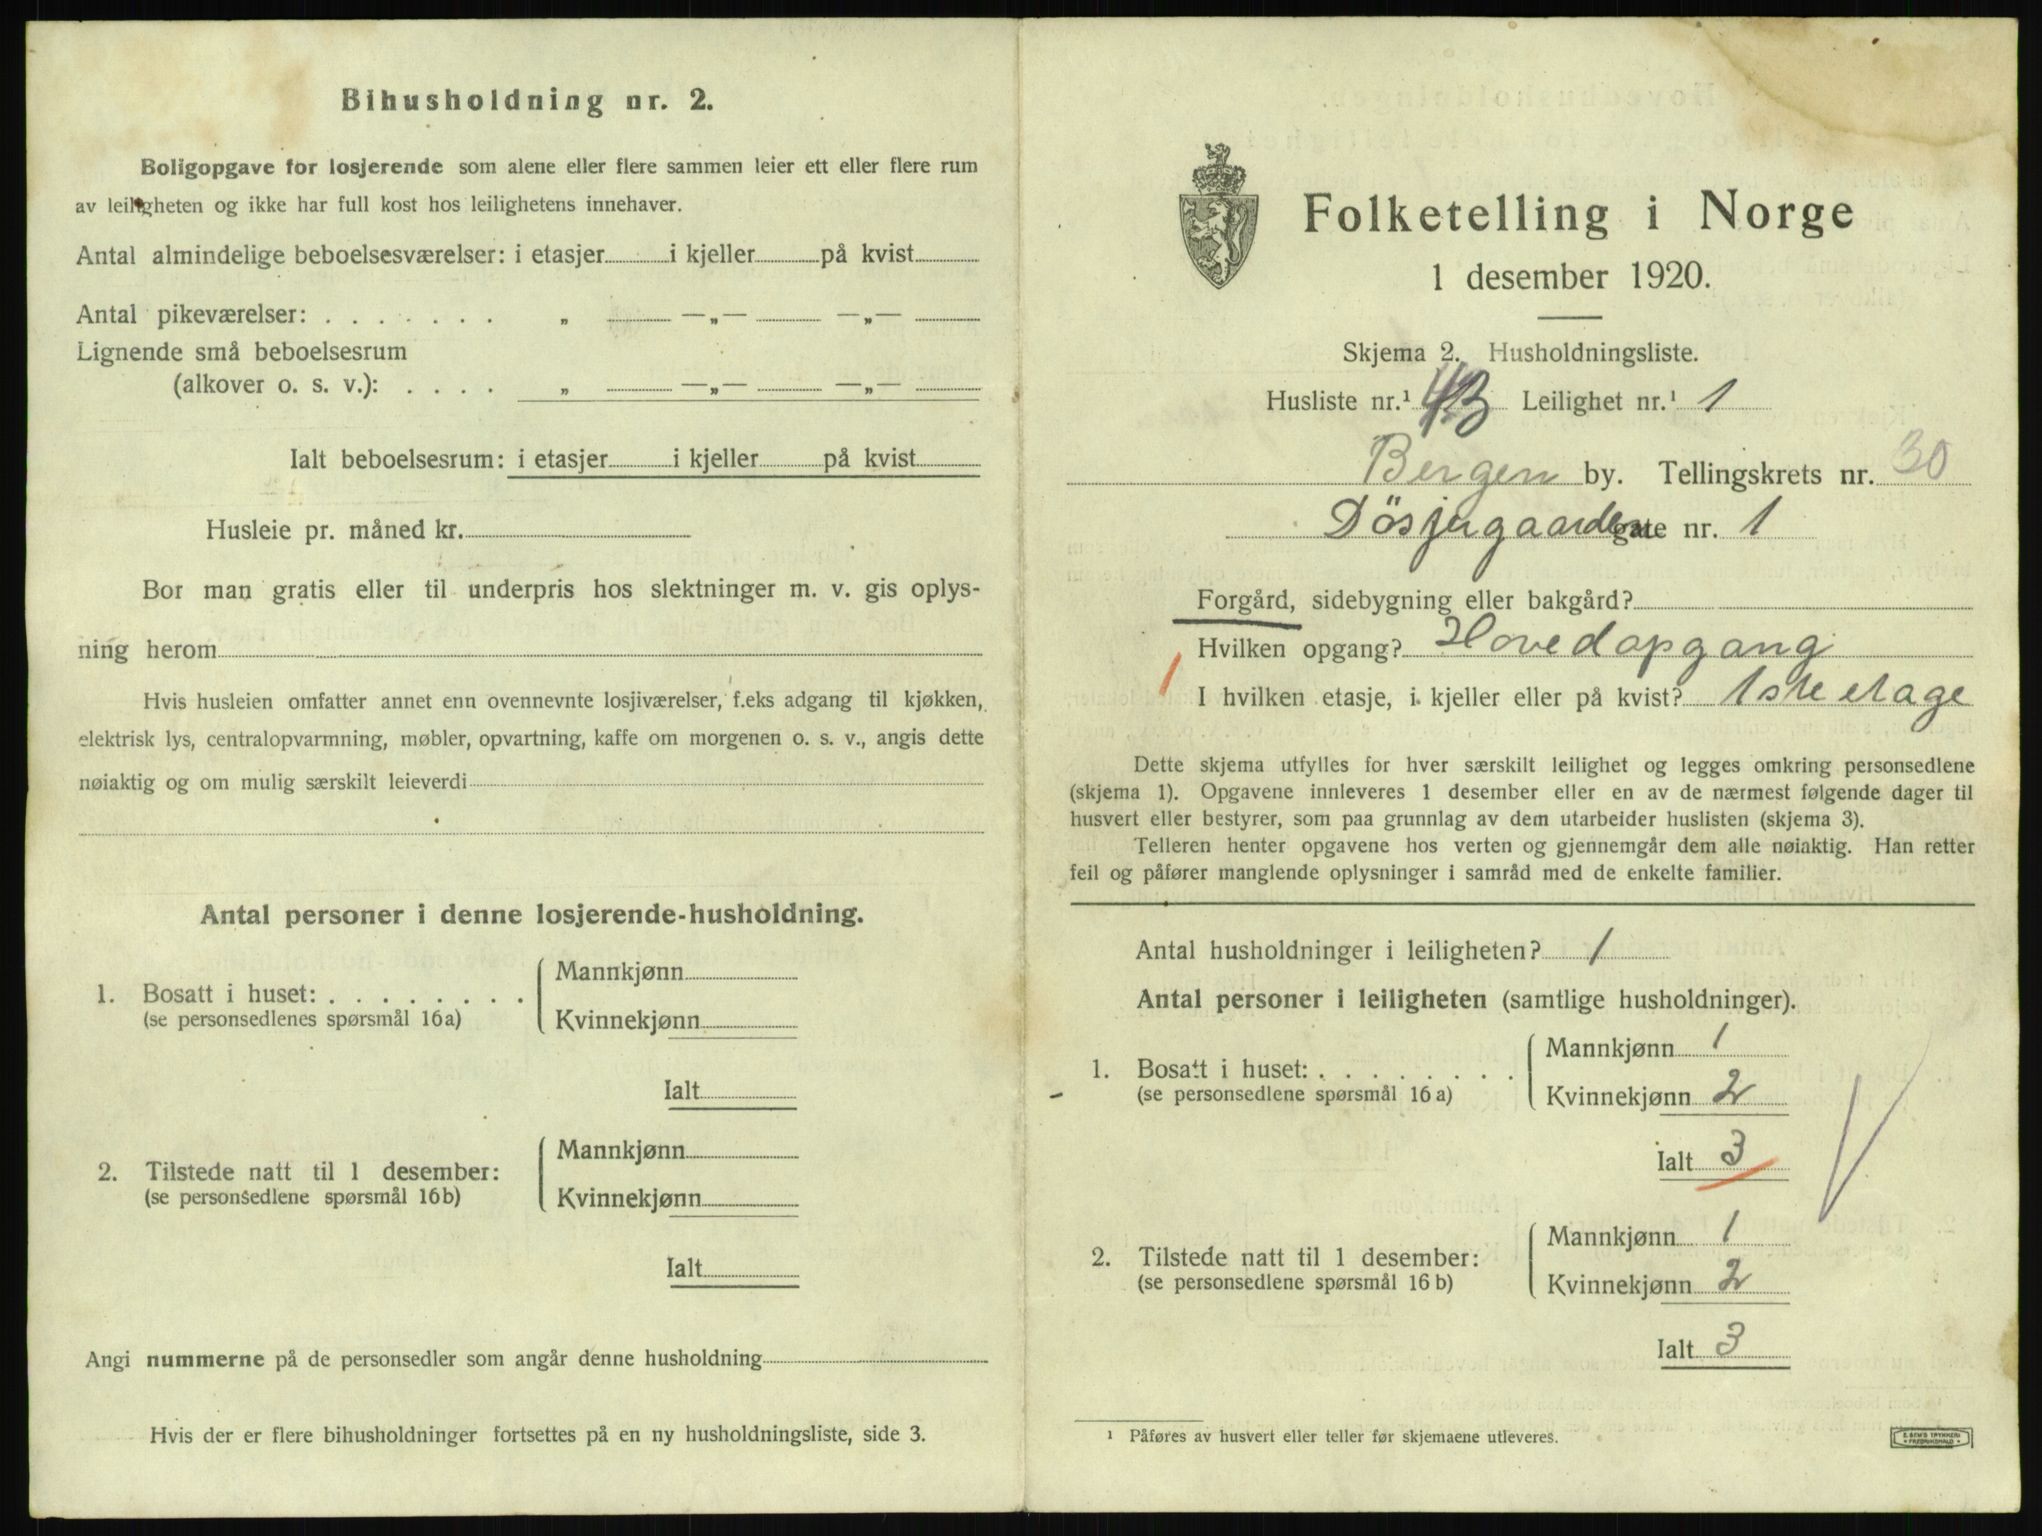 Bihusholdning nr. 2.
Boligopgave for losjerende som alene eller flere sammen leier ett eller flere rum
av leiligheten og ikke har full kost hos leilighetens innehaver.
Antal almindelige beboelsesværelser: i etasjer i kjeller på kvist
Antal pikeværelser: . . . . . . . „ —„— —„—
Lignende små beboelsesrum
(alkover o. s. v.): . . . . „ —„— —„—
Ialt beboelsesrum: i etasjer i kjeller på kvist
Husleie pr. måned kr.
Bor man gratis eller til underpris hos slektninger m. v. gis oplys-
ning herom
Hvis husleien omfatter annet enn ovennevnte losjiværelser, f.eks adgang til kjøkken,
elektrisk lys, centralopvarmning, møbler, opvartning, kaffe om morgenen o. s. v., angis dette
nøiaktig og om mulig særskilt leieverdi
Antal personer i denne losjerende-husholdning.
1. Bosatt i huset: . . . . . . . . Mannkjønn
(se personsedlenes spørsmål 16a) Kvinnekjønn
Ialt
2. Tilstede natt til 1 desember: Mannkjønn
(se personsedlene spørsmål 16b) Kvinnekjønn
Ialt
Angi nummerne på de personsedler som angår denne husholdning
Hvis der er flere bihusholdninger fortsettes på en ny husholdningsliste, side 3.
Folketelling i Norge
1 desember 1920.
Skjema 2. Husholdningsliste.
Husliste nr.¹ Leilighet nr.¹ 1
Bergen by. Tellingskrets nr. 30
Døsjergaarden gate nr. 1
Forgård, sidebygning eller bakgård?
Hvilken opgang? Hovedopgang
1 I hvilken etasje, i kjeller eller på kvist? 1ste etage
Dette skjema utfylles for hver særskilt leilighet og legges omkring personsedlene
(skjema 1). Opgavene innleveres 1 desember eller en av de nærmest følgende dager til
husvert eller bestyrer, som paa grunnlag av dem utarbeider huslisten (skjema 3).
Telleren henter opgavene hos verten og gjennemgår dem alle nøiaktig. Han retter
feil og påfører manglende oplysninger i samråd med de enkelte familier.
Antal husholdninger i leiligheten? 1
Antal personer i leiligheten (samtlige husholdninger).
1. Bosatt i huset: . . . . . . . . Mannkjønn 1
(se personsedlene spørsmål 16a) Kvinnekjønn 2
Ialt 3
2. Tilstede natt til 1 desember: Mannkjønn 1
(se personsedlene spørsmål 16b) Kvinnekjønn 2
Ialt 3
¹ Påføres av husvert eller teller før skjemaene utleveres.